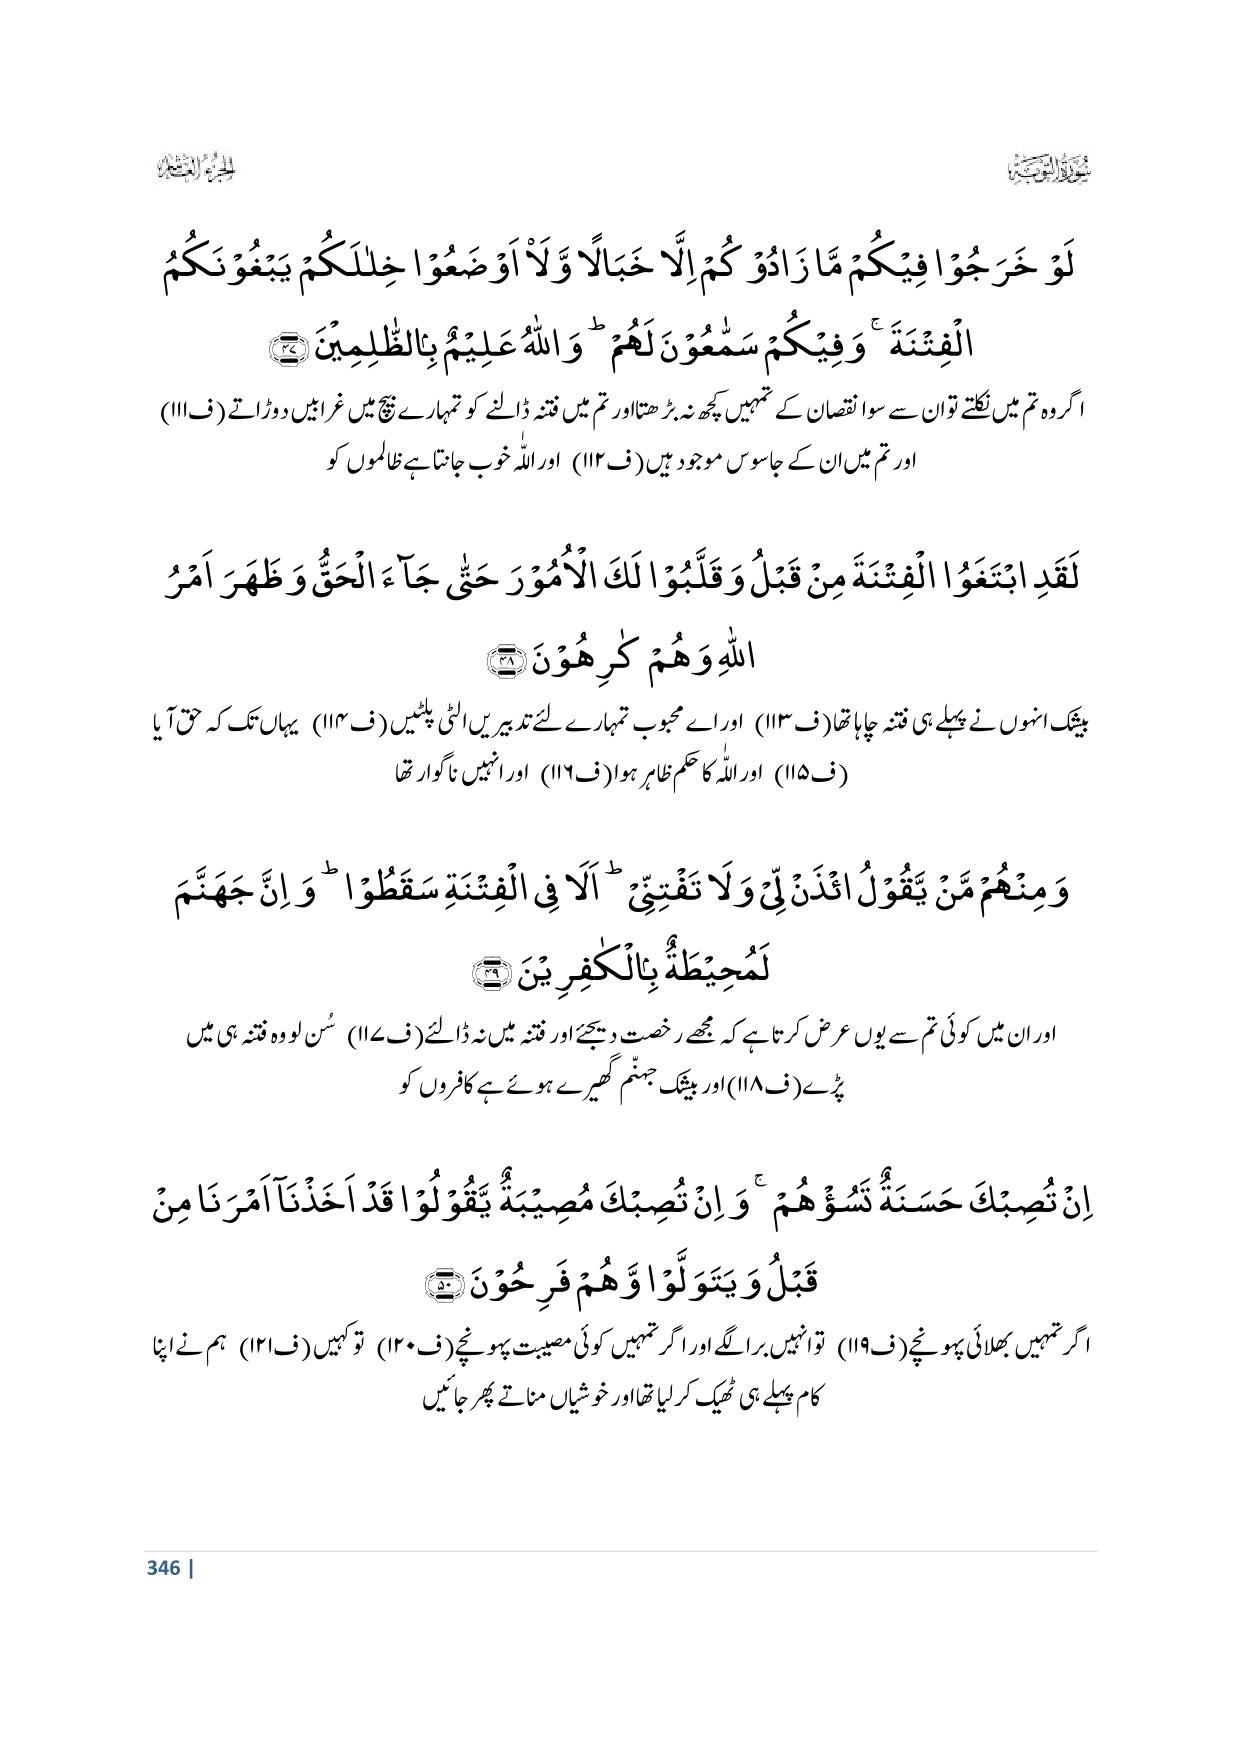 سُوْرَةُ التَّوْبَةِ
الجزء العاشر
لَوْ خَرَجُوْا فِیْكُمْ مَّا زَادُوْكُمْ اِلَّا خَبَالًا وَّ لَاۡ اَوْضَعُوْا خِلٰلَكُمْ یَبْغُوْنَكُمُ
الْفِتْنَةَ ۚ وَ فِیْكُمْ سَمّٰعُوْنَ لَهُمْ ؕ وَ اللّٰهُ عَلِیْمٌۢ بِالظّٰلِمِیْنَ ﴿۴۷﴾
اگر وہ تم میں نکلتے تو ان سے سوا نقصان کے تمہیں کچھ نہ بڑھتا اور تم میں فتنہ ڈالنے کو تمہارے بیچ میں غرابیں دوڑاتے (ف۱۱۱)
اور تم میں ان کے جاسوس موجود ہیں (ف۱۱۲) اور اللّٰہ خوب جانتا ہے ظالموں کو
لَقَدِ ابْتَغَوُا الْفِتْنَةَ مِنْ قَبْلُ وَ قَلَّبُوْا لَكَ الْاُمُوْرَ حَتّٰی جَآءَ الْحَقُّ وَ ظَهَرَ اَمْرُ
اللّٰهِ وَ هُمْ كٰرِهُوْنَ ﴿۴۸﴾
بیشک انہوں نے پہلے ہی فتنہ چاہا تھا (ف۱۱۳) اور اے محبوب تمہارے لئے تدبیریں الٹی پلٹیں (ف۱۱۴) یہاں تک کہ حق آیا
(ف۱۱۵) اور اللّٰہ کا حکم ظاہر ہوا (ف۱۱۶) اور انہیں ناگوار تھا
وَ مِنْهُمْ مَّنْ یَّقُوْلُ ائْذَنْ لِّیْ وَ لَا تَفْتِنِّیْ ؕ اَلَا فِی الْفِتْنَةِ سَقَطُوْا ؕ وَ اِنَّ جَهَنَّمَ
لَمُحِیْطَةٌۢ بِالْكٰفِرِیْنَ ﴿۴۹﴾
اور ان میں کوئی تم سے یوں عرض کرتا ہے کہ مجھے رخصت دیجئے اور فتنہ میں نہ ڈالئے (ف۱۱۷) سُن لو وہ فتنہ ہی میں
پڑے (ف۱۱۸) اور بیشک جہنّم گھیرے ہوئے ہے کافروں کو
اِنْ تُصِبْكَ حَسَنَةٌ تَسُؤْهُمْ ۚ وَ اِنْ تُصِبْكَ مُصِیْبَةٌ یَّقُوْلُوْا قَدْ اَخَذْنَاۤ اَمْرَنَا مِنْ
قَبْلُ وَ یَتَوَلَّوْا وَّ هُمْ فَرِحُوْنَ ﴿۵۰﴾
اگر تمہیں بھلائی پہونچے (ف۱۱۹) تو انہیں برا لگے اور اگر تمہیں کوئی مصیبت پہونچے (ف۱۲۰) تو کہیں (ف۱۲۱) ہم نے اپنا
کام پہلے ہی ٹھیک کر لیا تھا اور خوشیاں مناتے پھر جائیں
346 |